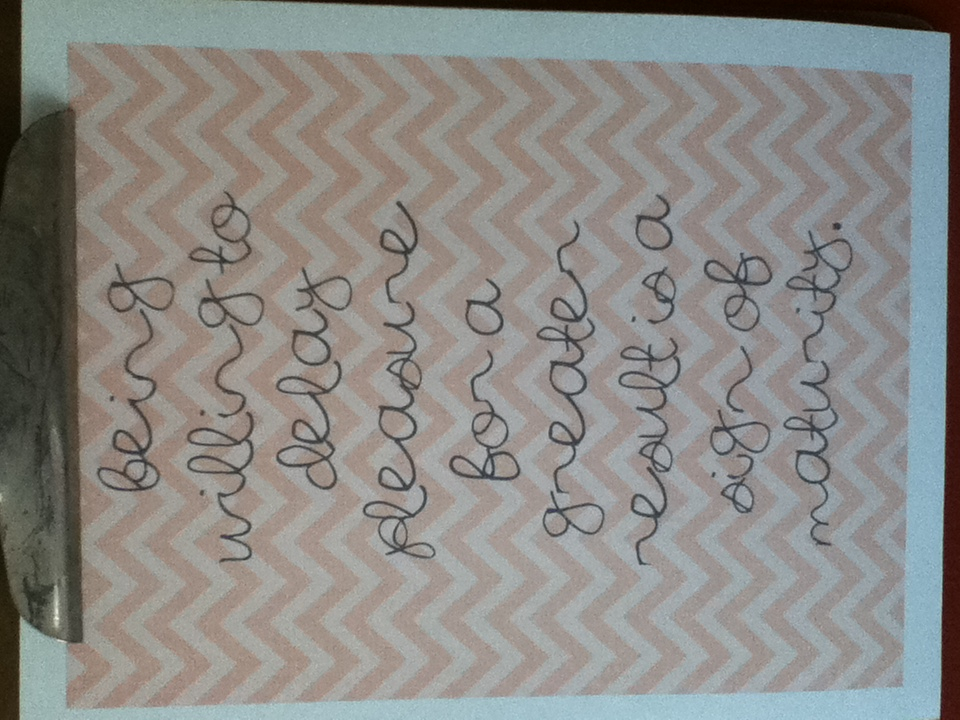 being
willing to
delay
pleasure
for a
greater
result is a
sign of
maturity.